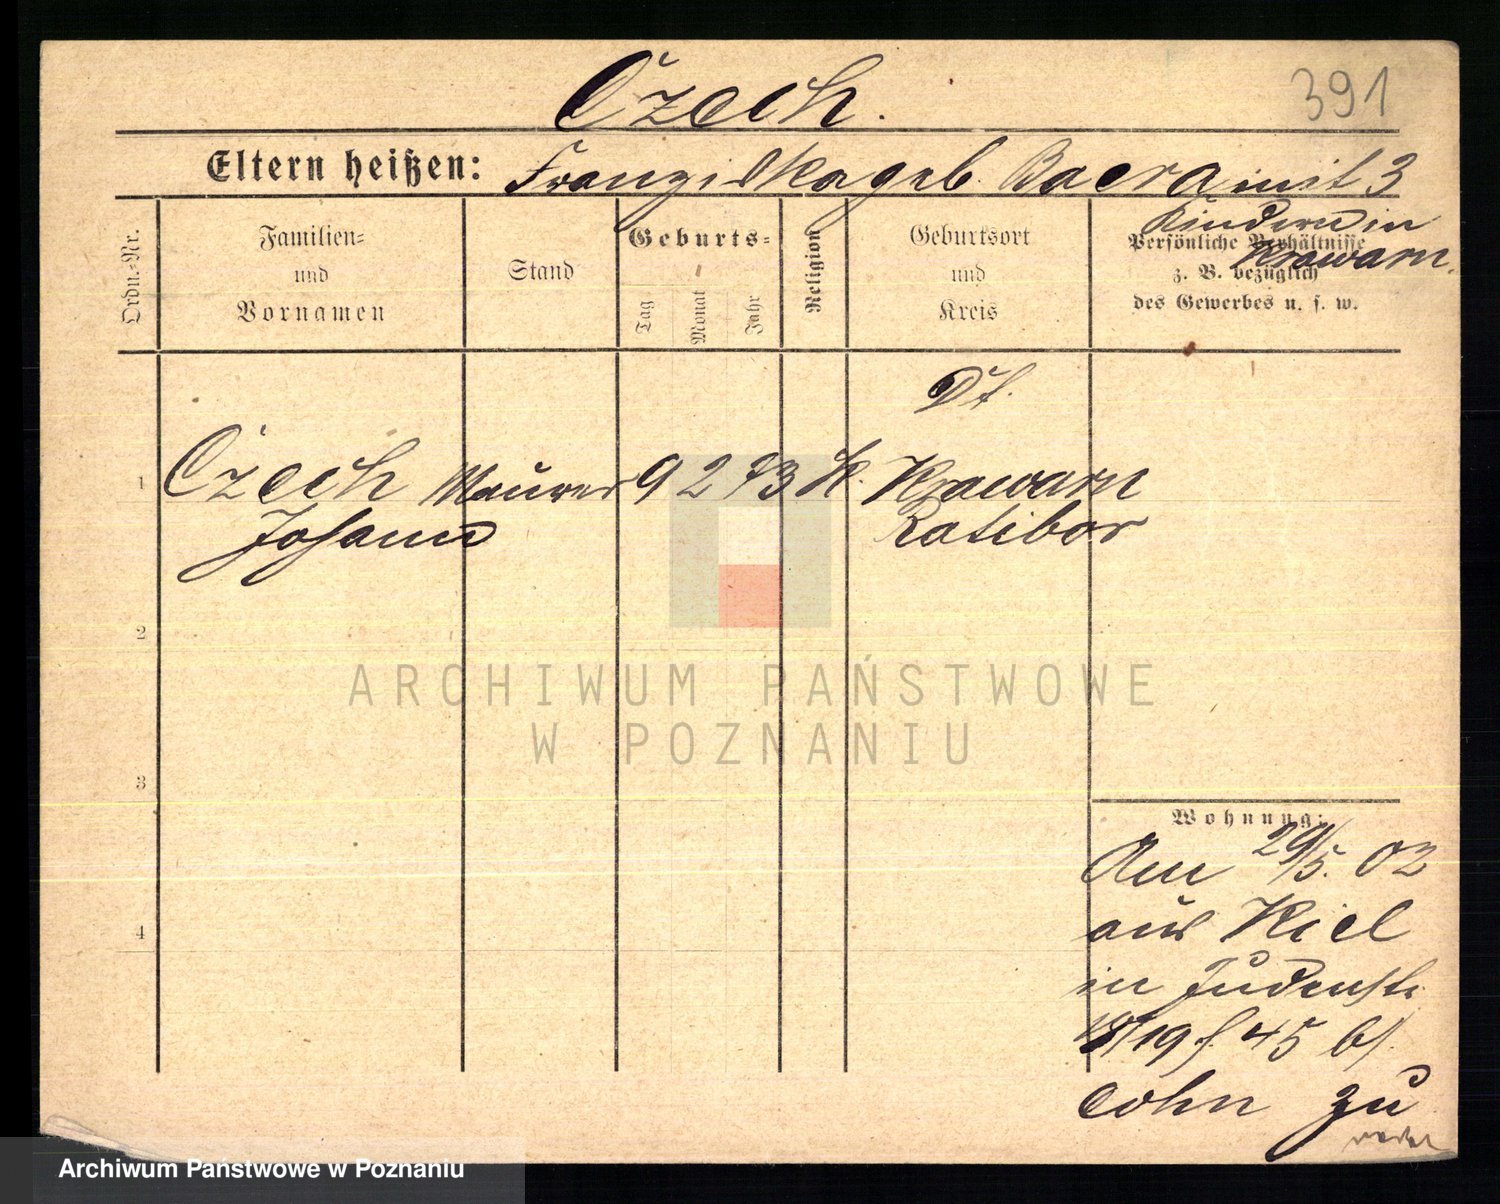 Czech.
391
Eltern heißen: Franziska geb. Baera mit 3
Kindern in
Krawarn.
Ordn.-Nr.
Familien-
und
Vornamen
Stand
Geburts-
Tag
Monat
Jahr
Religion
Geburtsort
und
Kreis
Persönliche Verhältnisse
z. B. bezüglich
des Gewerbes u. s. w.
Dt.
1 Czech Maurer 9 2 73 k. Krawarn
Johann Ratibor
2
3
4
Wohnung:
Am 29/5. 02
aus Kiel
in Judenstr.
18/19 45 b/
Cohn zu
ARCHIWUM PAŃSTWOWE
W POZNANIU
Archiwum Państwowe w Poznaniu